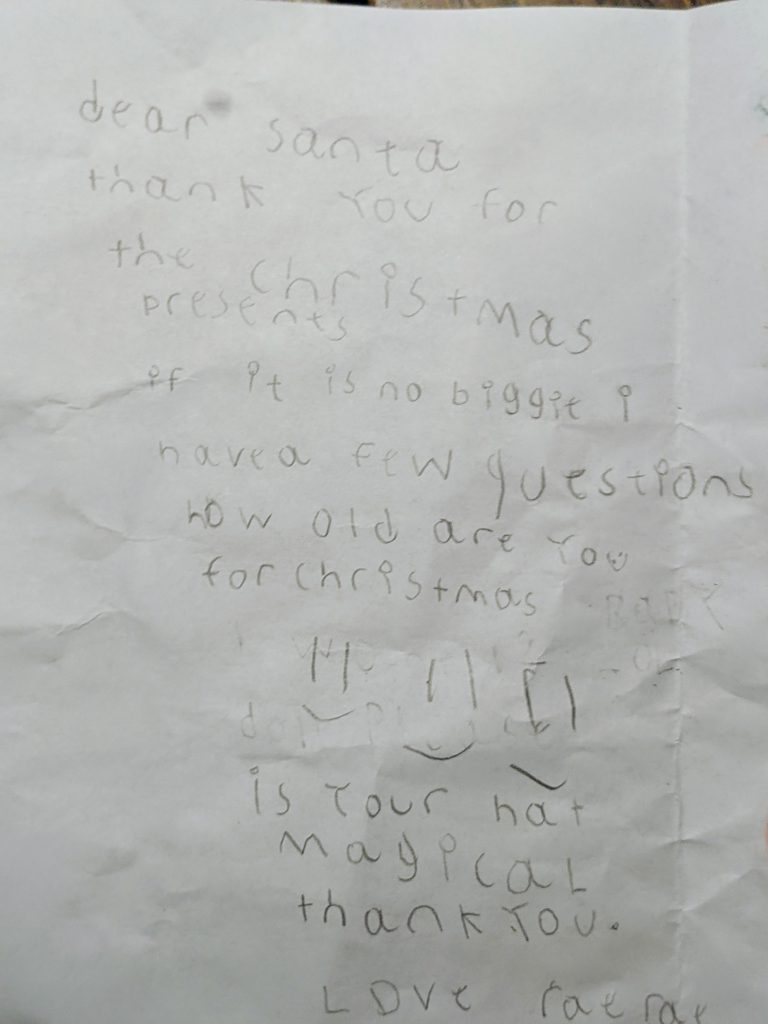 dear santa
thank you for
the christmas
presents
if it is no biggie i
have a few questions
how old are you
for christmas
is your hat
magical
thank you.
Love raerae